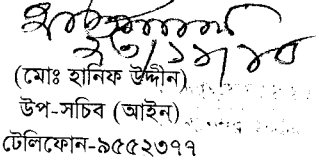 (মোঃ হানিফ উদ্দীন)
উপ-সচিব (আইন)
টেলিফোন-৯৫৫২৩৭৭